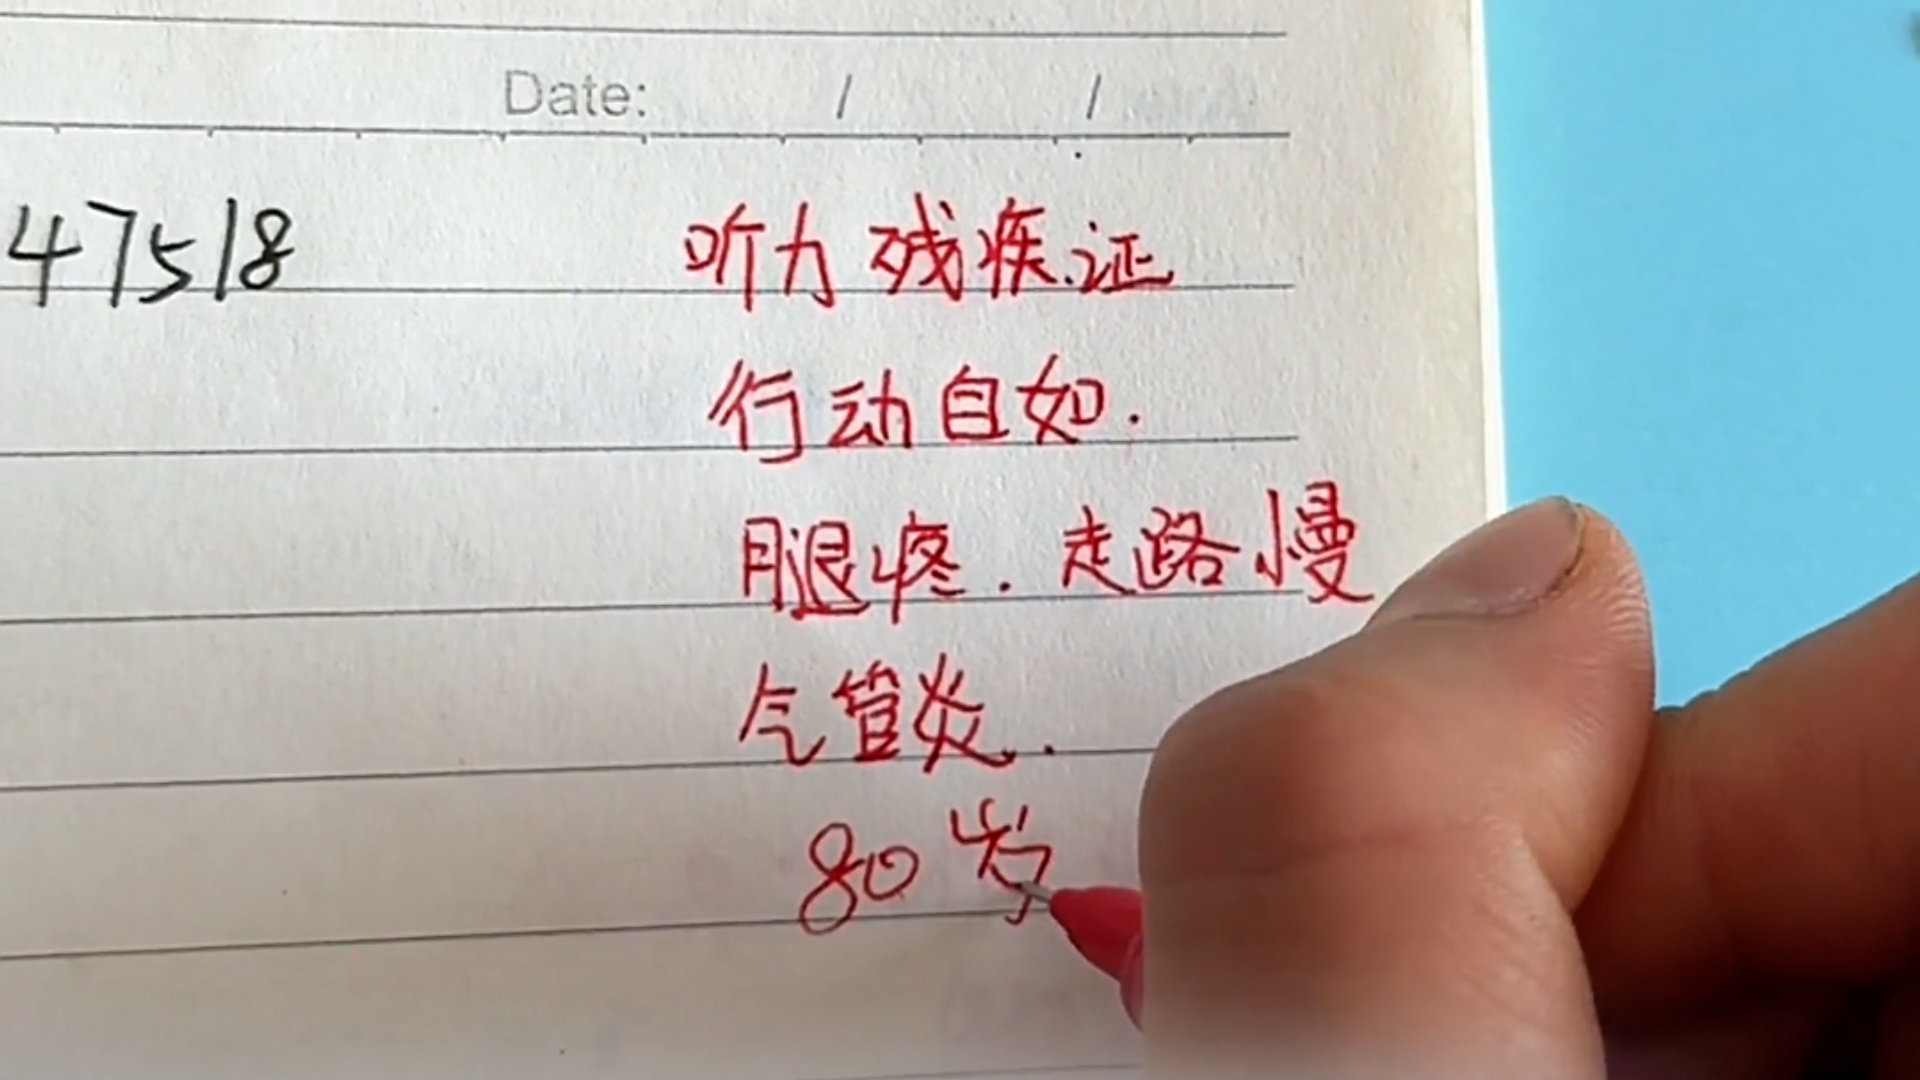 Date: / /
47518 听力残疾证
行动自如.
腿疼.走路慢
气管炎.
80岁